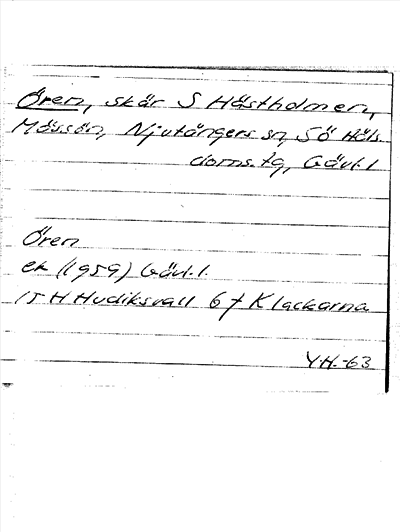 Ören, skär S Hästholmen,
Mössön, Njutångers sn, Sö Häls.
doms.tg, Gävl.l
Ören
ek (1959) Gävl.l.
15H Hudiksvall 6f Klackarna
YH.-63